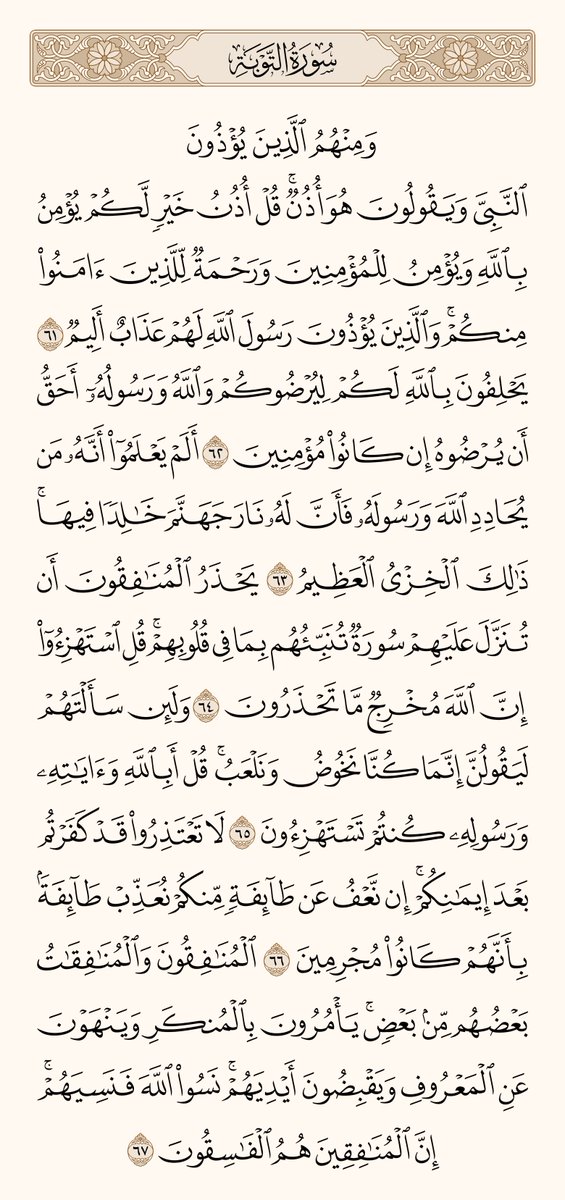 سُورَةُ التَّوۡبَةِ
وَمِنۡهُمُ ٱلَّذِينَ يُؤۡذُونَ
ٱلنَّبِيَّ وَيَقُولُونَ هُوَ أُذُنٞۚ قُلۡ أُذُنُ خَيۡرٖ لَّكُمۡ يُؤۡمِنُ
بِٱللَّهِ وَيُؤۡمِنُ لِلۡمُؤۡمِنِينَ وَرَحۡمَةٞ لِّلَّذِينَ ءَامَنُواْ
مِنكُمۡۚ وَٱلَّذِينَ يُؤۡذُونَ رَسُولَ ٱللَّهِ لَهُمۡ عَذَابٌ أَلِيمٞ ٦١
يَحۡلِفُونَ بِٱللَّهِ لَكُمۡ لِيُرۡضُوكُمۡ وَٱللَّهُ وَرَسُولُهُۥٓ أَحَقُّ
أَن يُرۡضُوهُ إِن كَانُواْ مُؤۡمِنِينَ ٦٢ أَلَمۡ يَعۡلَمُوٓاْ أَنَّهُۥ مَن
يُحَادِدِ ٱللَّهَ وَرَسُولَهُۥ فَأَنَّ لَهُۥ نَارَ جَهَنَّمَ خَٰلِدٗا فِيهَاۚ
ذَٰلِكَ ٱلۡخِزۡيُ ٱلۡعَظِيمُ ٦٣ يَحۡذَرُ ٱلۡمُنَٰفِقُونَ أَن
تُنَزَّلَ عَلَيۡهِمۡ سُورَةٞ تُنَبِّئُهُم بِمَا فِي قُلُوبِهِمۡۚ قُلِ ٱسۡتَهۡزِءُوٓاْ
إِنَّ ٱللَّهَ مُخۡرِجٞ مَّا تَحۡذَرُونَ ٦٤ وَلَئِن سَأَلۡتَهُمۡ
لَيَقُولُنَّ إِنَّمَا كُنَّا نَخُوضُ وَنَلۡعَبُۚ قُلۡ أَبِٱللَّهِ وَءَايَٰتِهِۦ
وَرَسُولِهِۦ كُنتُمۡ تَسۡتَهۡزِءُونَ ٦٥ لَا تَعۡتَذِرُواْ قَدۡ كَفَرۡتُم
بَعۡدَ إِيمَٰنِكُمۡۚ إِن نَّعۡفُ عَن طَآئِفَةٖ مِّنكُمۡ نُعَذِّبۡ طَآئِفَةَۢ
بِأَنَّهُمۡ كَانُواْ مُجۡرِمِينَ ٦٦ ٱلۡمُنَٰفِقُونَ وَٱلۡمُنَٰفِقَٰتُ
بَعۡضُهُم مِّنۢ بَعۡضٖۚ يَأۡمُرُونَ بِٱلۡمُنكَرِ وَيَنۡهَوۡنَ
عَنِ ٱلۡمَعۡرُوفِ وَيَقۡبِضُونَ أَيۡدِيَهُمۡۚ نَسُواْ ٱللَّهَ فَنَسِيَهُمۡۚ
إِنَّ ٱلۡمُنَٰفِقِينَ هُمُ ٱلۡفَٰسِقُونَ ٦٧